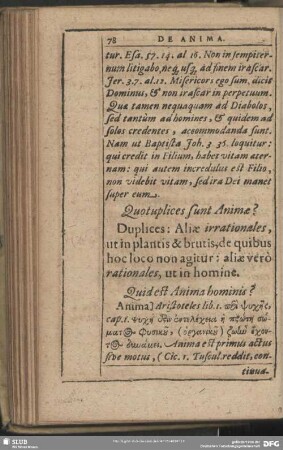 78 DE ANIMA.
tur. Esa. 57. 14. al 18. Non in sempiter-
num litigabo, neq; usq; ad finem irascar.
Jer. 3. 7. al. 12. Misericors ego sum, dicit
Dominus, & non irascar in perpetuum.
Quæ tamen nequaquam ad Diabolos,
sed tantùm ad homines, & quidem ad
solos credentes, accommodanda sunt.
Nam ut Baptista Joh. 3 36. loquitur:
qui credit in Filium, habet vitam æter-
nam: qui autem incredulus est Filio,
non videbit vitam, sed ira Dei manet
super eum.
Quotuplices sunt Animæ?
Duplices: Aliæ irrationales,
ut in plantis & brutis, de quibus
hoc loco non agitur: aliæ verò
rationales, ut in homine.
Quid est Anima hominis?
Anima] Aristoteles lib. 2. περὶ ψυχῆς,
cap. 1. ψυχή ἐστιν ἐντελέχεια ἡ πρώτη σώ-
ματ@ φυσικοῦ, (ὀργανικοῦ) ζωὴν ἔχον-
τ@ δυνάμει. Anima est primus actus
sive motus, (Cic. 1. Tuscul. reddit, con-
tinua-
SLUB
DFG